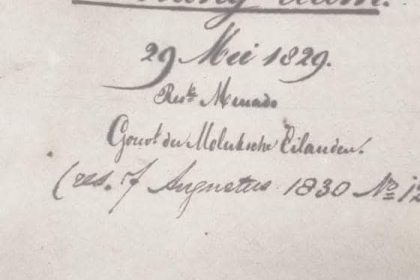 29 Mei 1829.
Resie Menado
Gouvt der Moluksche Eilanden.
(res. 7 Augustus 1830 No 12